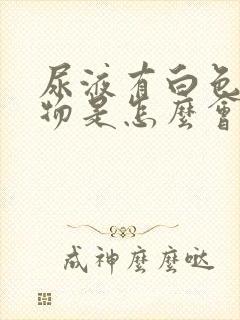 尿液有白色
物是怎麼會
成神麼麼哒